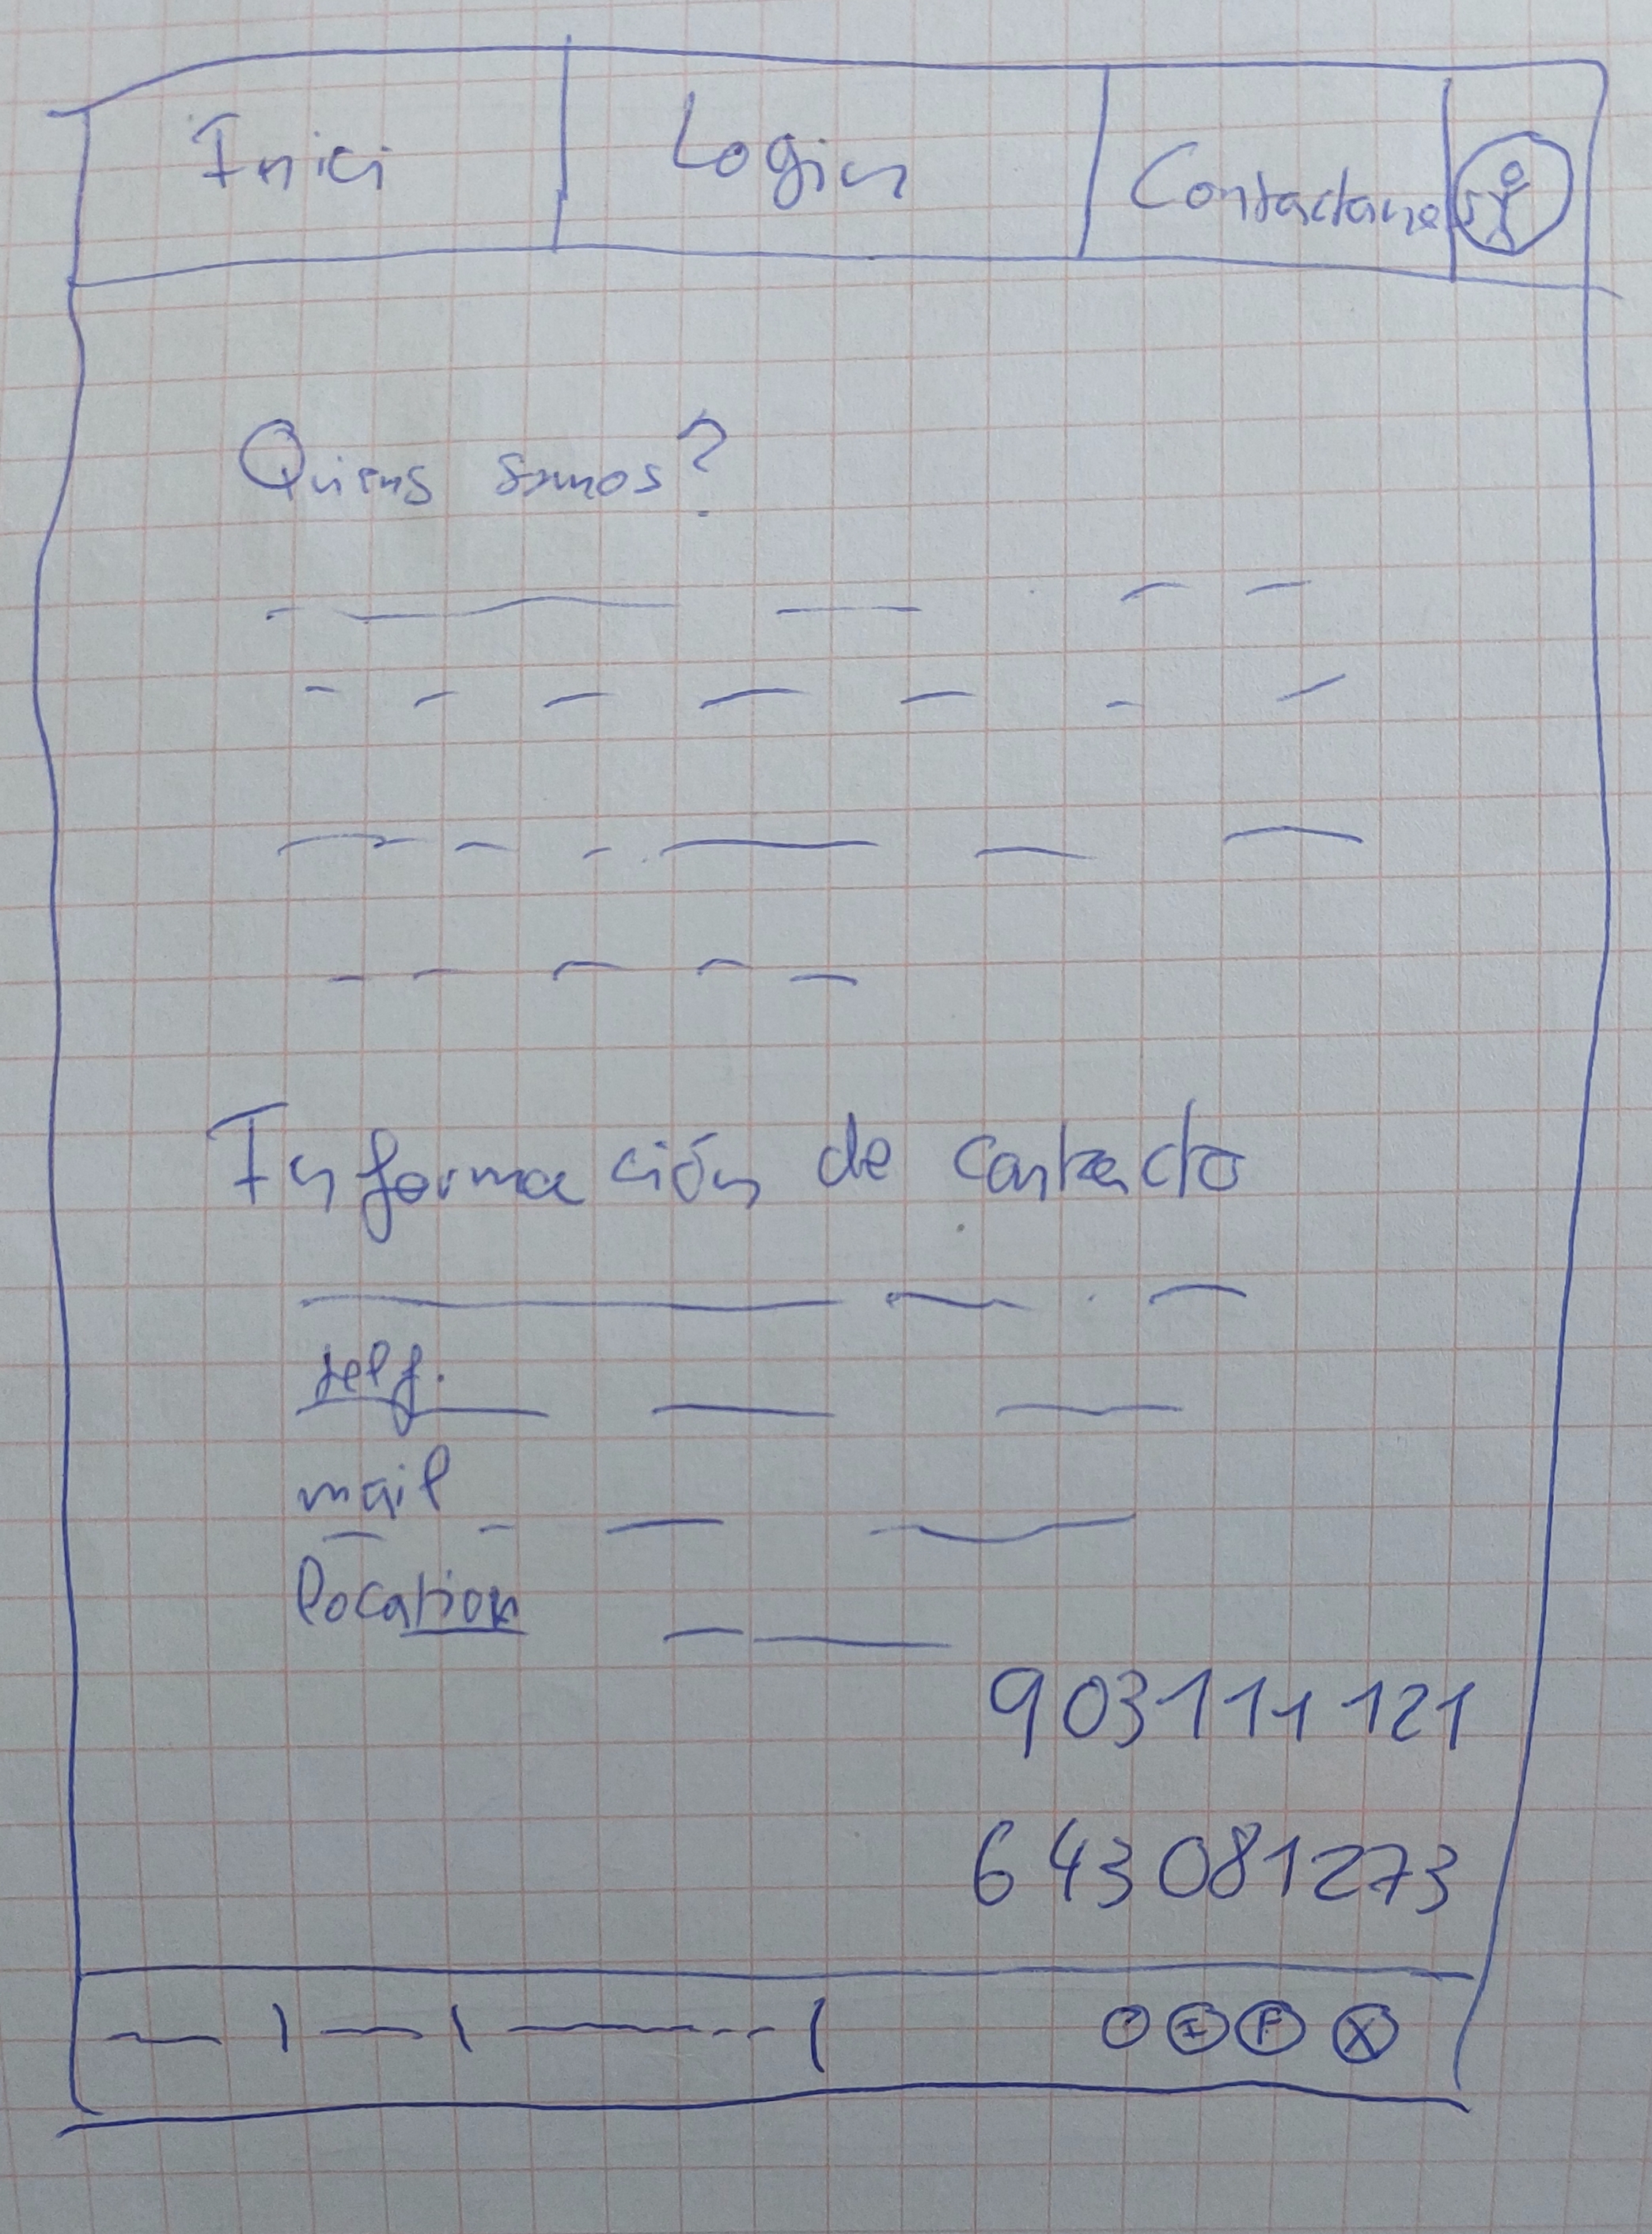 Inici Login Contactanos
Quiens somos?
Información de contacto
telf.
mail
location
903111121
643081273
I F X